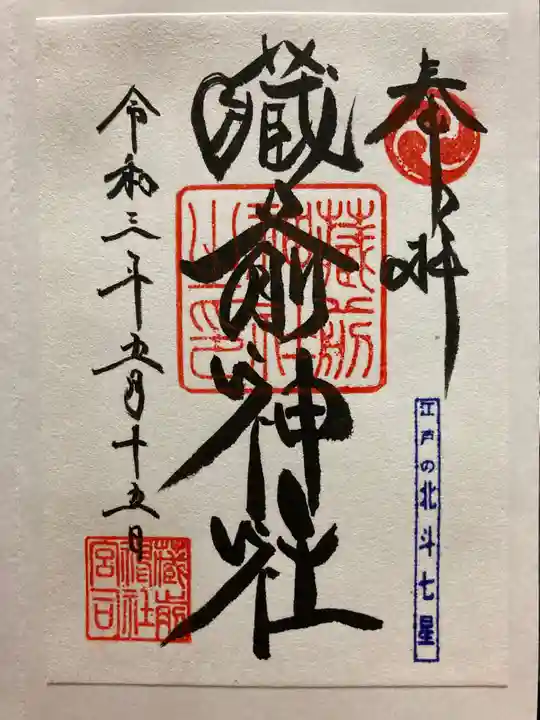 奉拝
江戸の北斗七星
藏前神社
蔵前神社之印
令和三年五月十五日
蔵前神社宮司